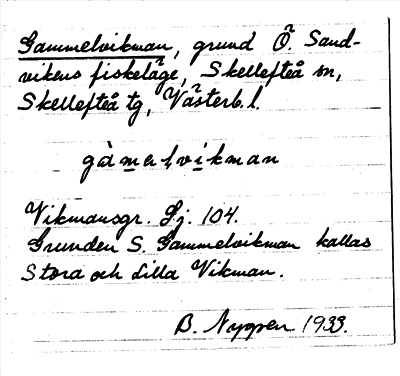 Gammelvikman, grund Ö. Sand-
vikens fiskeläge, Skellefteå sn,
Skellefteå tg, Västerb. l.
gàmelvikman
Vikmansgr. Sj. 104.
Grunden S. Gammelvikman kallas
Stora och Lilla Vikman.
B. Nygren 1933.